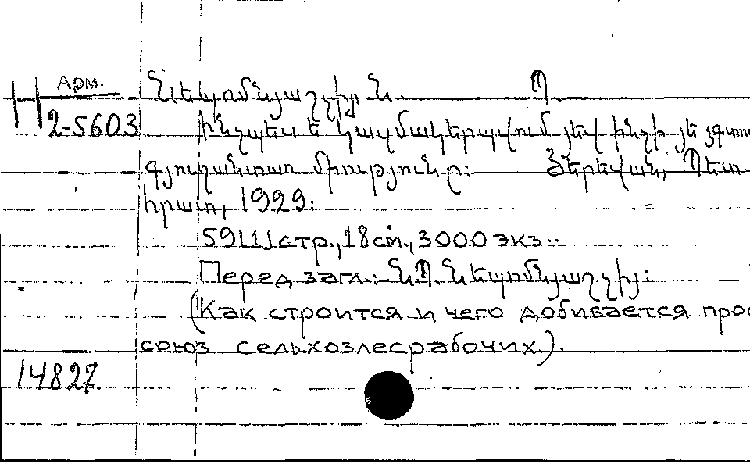 Арм. Նեպոմնյաշչիյ Ն. Պ
Н 2-5603 Ինչպես է կազմակերպվում յեվ ինչի յե
գյուղանտառ միությունը: Յերեվան, Պետ
հրատ, 1929.
59[1] стр., 18 см., 3000 экз..
Перед загл.: Ն.Պ. Նեպոմնյաշչիյ:
(Как строится и чего добивается проф
союз сельхозлесрабочих.).
14827.